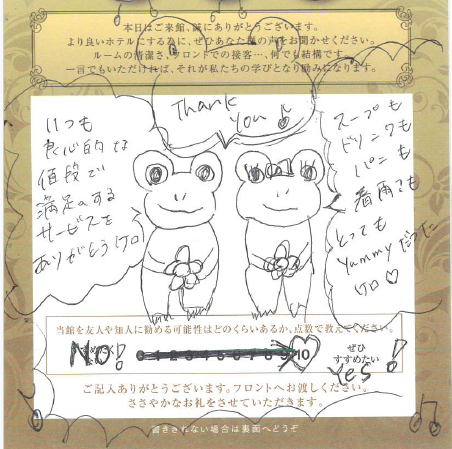 本日はご来館、誠にありがとうございます。
より良いホテルにする為に、ぜひあなた様の声をお聞かせください。
ルームの清潔さ、フロントでの接客…、何でも結構です。
一言でもいただければ、それが私たちの学びとなり励みになります。
Thank
You♪
いつも
良心的な
値段で
満足のする
サービスを
ありがとうケロ
スープも
ドリンクも
パンも
とっても
yummyだった
ケロ♡
当館を友人や知人に勧める可能性はどのくらいあるか、点数で教えてください。
NO!
0 1 2 3 4 5 6 7 8 9 10
ぜひ
すすめたい
Yes!
ご記入ありがとうございます。フロントへお渡しください。
ささやかなお礼をさせていただきます。
書ききれない場合は裏面へどうぞ